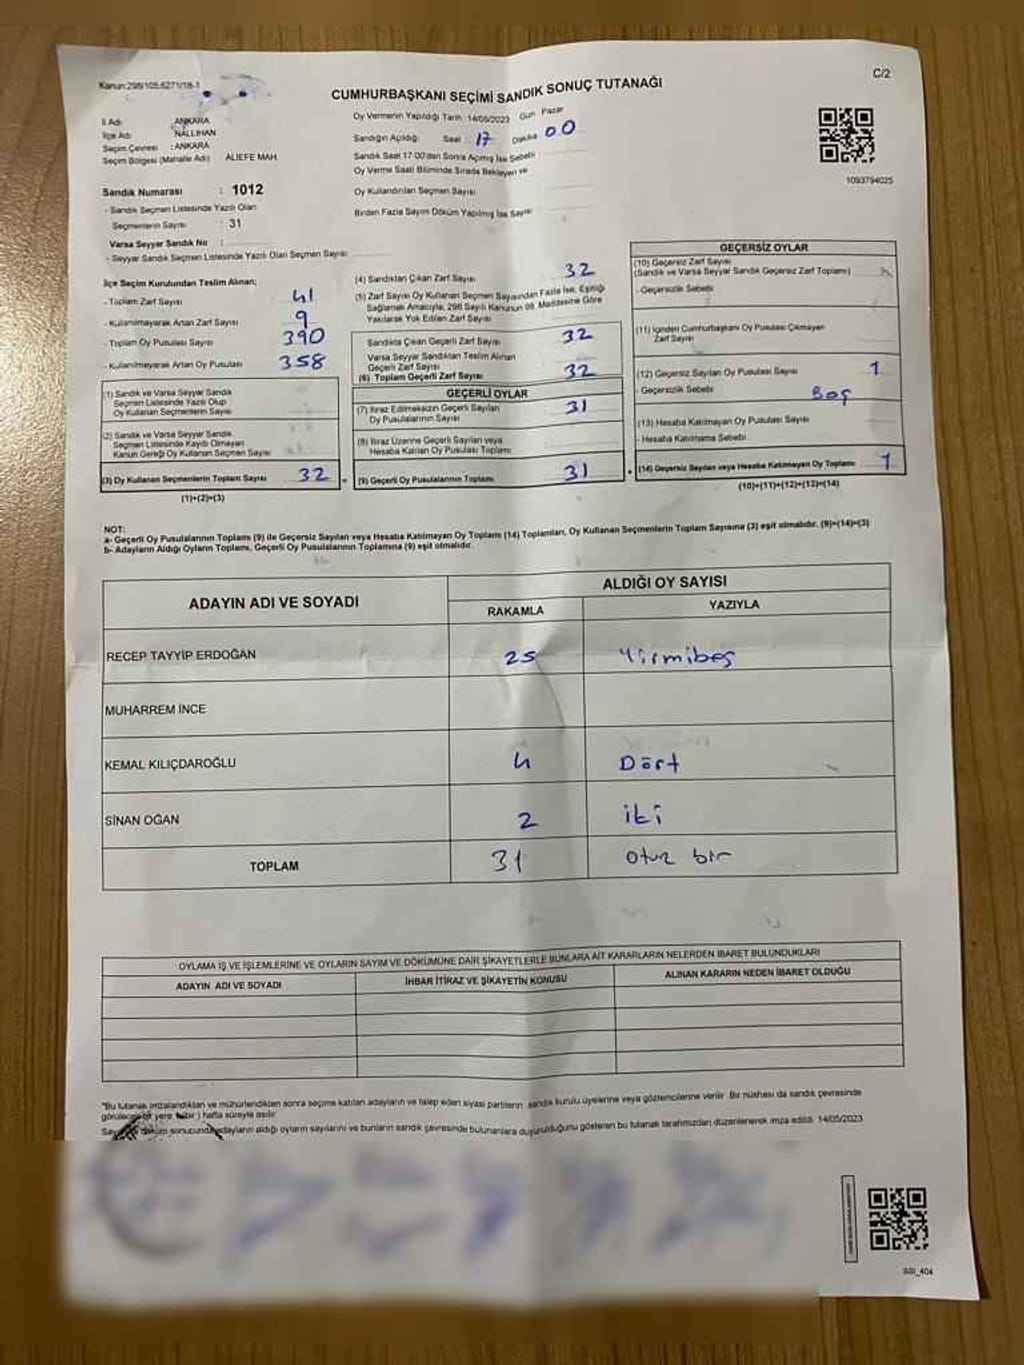 Kanun:298/105.6271/18-1
C/2
CUMHURBAŞKANI SEÇİMİ SANDIK SONUÇ TUTANAĞI
İl Adı : ANKARA
İlçe Adı : NALLIHAN
Seçim Çevresi : ANKARA
Seçim Bölgesi (Mahalle Adı) ALİEFE MAH.
Sandık Numarası : 1012
- Sandık Seçmen Listesinde Yazılı Olan
Seçmenlerin Sayısı : 31
Varsa Seyyar Sandık No :
- Seyyar Sandık Seçmen Listesinde Yazılı Olan Seçmen Sayısı
Oy Vermenin Yapıldığı Tarih: 14/05/2023 Gün Pazar
Sandığın Açıldığı Saat 17 Dakika 00
Sandık Saat 17:00'den Sonra Açmış İse Sebebi
Oy Verme Saati Bitiminde Sırada Bekleyen ve
Oy Kullandırılan Seçmen Sayısı
Birden Fazla Sayım Döküm Yapılmış İse Sayısı
1093794025
İlçe Seçim Kurulundan Teslim Alınan;
- Toplam Zarf Sayısı 41
- Kullanılmayarak Artan Zarf Sayısı 9
- Toplam Oy Pusulası Sayısı 390
- Kullanılmayarak Artan Oy Pusulası 358
(1) Sandık ve Varsa Seyyar Sandık
Seçmen Listesinde Yazılı Olup
Oy Kullanan Seçmenlerin Sayısı
(2) Sandık ve Varsa Seyyar Sandık
Seçmen Listesinde Kayıtlı Olmayan
Kanun Gereği Oy Kullanan Seçmen Sayısı
(3) Oy Kullanan Seçmenlerin Toplam Sayısı 32
(1)+(2)=(3)
(4) Sandıktan Çıkan Zarf Sayısı 32
(5) Zarf Sayısı Oy Kullanan Seçmen Sayısından Fazla İse, Eşitliği
Sağlamak Amacıyla, 298 Sayılı Kanunun 98. Maddesine Göre
Yakılarak Yok Edilen Zarf Sayısı
Sandıkta Çıkan Geçerli Zarf Sayısı 32
Varsa Seyyar Sandıktan Teslim Alınan
Geçerli Zarf Sayısı
(6) Toplam Geçerli Zarf Sayısı 32
GEÇERLİ OYLAR
(7) İtiraz Edilmeksizin Geçerli Sayılan
Oy Pusulalarının Sayısı 31
(8) İtiraz Üzerine Geçerli Sayılan veya
Hesaba Katılan Oy Pusulası Toplamı
(9) Geçerli Oy Pusulalarının Toplamı 31
GEÇERSİZ OYLAR
(10) Geçersiz Zarf Sayısı
(Sandık ve Varsa Seyyar Sandık Geçersiz Zarf Toplamı)
- Geçersizlik Sebebi
(11) İçinden Cumhurbaşkanı Oy Pusulası Çıkmayan
Zarf Sayısı
(12) Geçersiz Sayılan Oy Pusulası Sayısı 1
- Geçersizlik Sebebi Boş
(13) Hesaba Katılmayan Oy Pusulası Sayısı
- Hesaba Katılmama Sebebi
(14) Geçersiz Sayılan veya Hesaba Katılmayan Oy Toplamı 1
(10)+(11)+(12)+(13)=(14)
NOT:
a- Geçerli Oy Pusulalarının Toplamı (9) ile Geçersiz Sayılan veya Hesaba Katılmayan Oy Toplamı (14) Toplamları, Oy Kullanan Seçmenlerin Toplam Sayısına (3) eşit olmalıdır. (9)+(14)=(3)
b- Adayların Aldığı Oyların Toplamı, Geçerli Oy Pusulalarının Toplamına (9) eşit olmalıdır.
ADAYIN ADI VE SOYADI
ALDIĞI OY SAYISI
RAKAMLA YAZIYLA
RECEP TAYYİP ERDOĞAN 25 Yirmibeş
MUHARREM İNCE
KEMAL KILIÇDAROĞLU 4 Dört
SİNAN OĞAN 2 iki
TOPLAM 31 otuz bir
OYLAMA İŞ VE İŞLEMLERİNE VE OYLARIN SAYIM VE DÖKÜMÜNE DAİR ŞİKAYETLERLE BUNLARA AİT KARARLARIN NELERDEN İBARET BULUNDUKLARI
ADAYIN ADI VE SOYADI İHBAR İTİRAZ VE ŞİKAYETİN KONUSU ALINAN KARARIN NEDEN İBARET OLDUĞU
"Bu tutanak imzalandıktan ve mühürlendikten sonra seçime katılan adayların ve talep eden siyasi partilerin sandık kurulu üyelerine veya gözlemcilerine verilir. Bir nüshası da sandık çevresinde
görülecek bir yere bir hafta süreyle asılır.
döküm sonucunda adayların aldığı oyların sayılarını ve bunların sandık çevresinde bulunanlara duyurulduğunu gösteren bu tutanak tarafımızdan düzenlenerek imza edildi. 14/05/2023
SGI_404